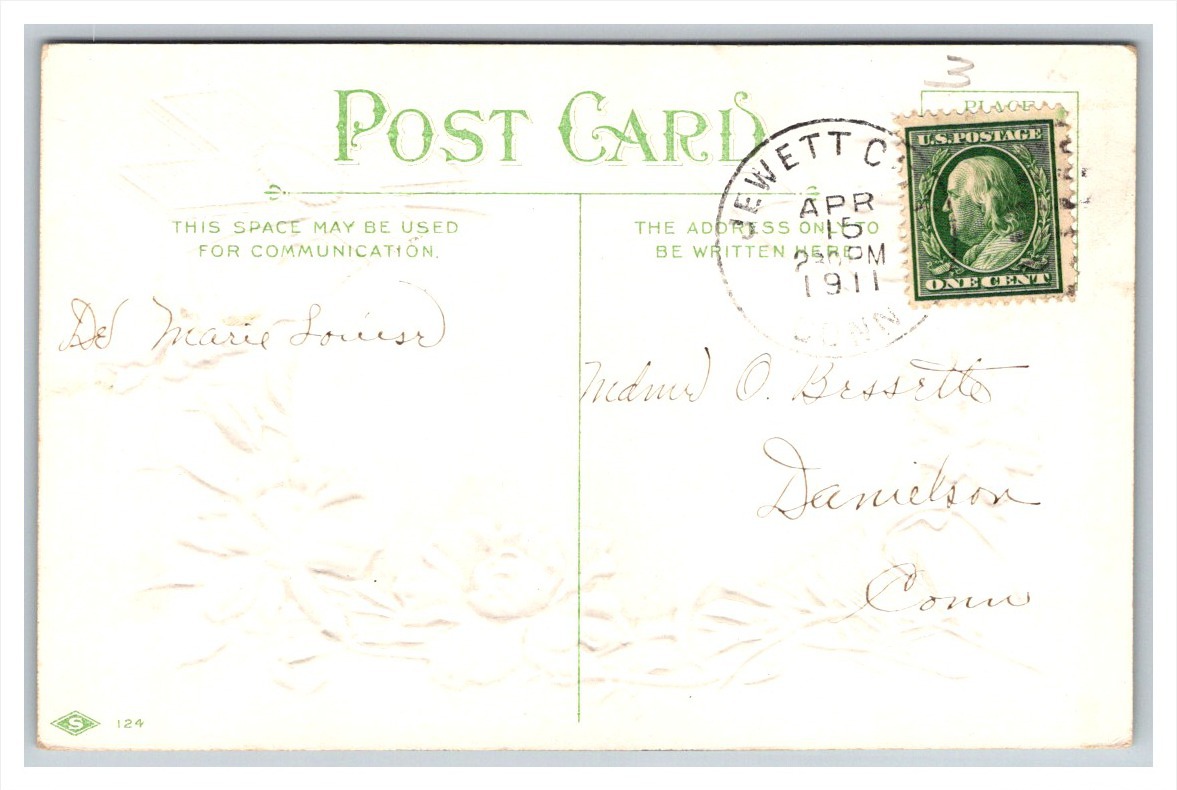 3
POST CARD
PLACE
U.S. POSTAGE
ONE CENT
JEWETT C
APR
15
2 30 PM
1911
CONN
THIS SPACE MAY BE USED
FOR COMMUNICATION.
THE ADDRESS ONLY TO
BE WRITTEN HERE
De Marie Louise
Mdme O. Bessette
Danielson
Conn
S 124